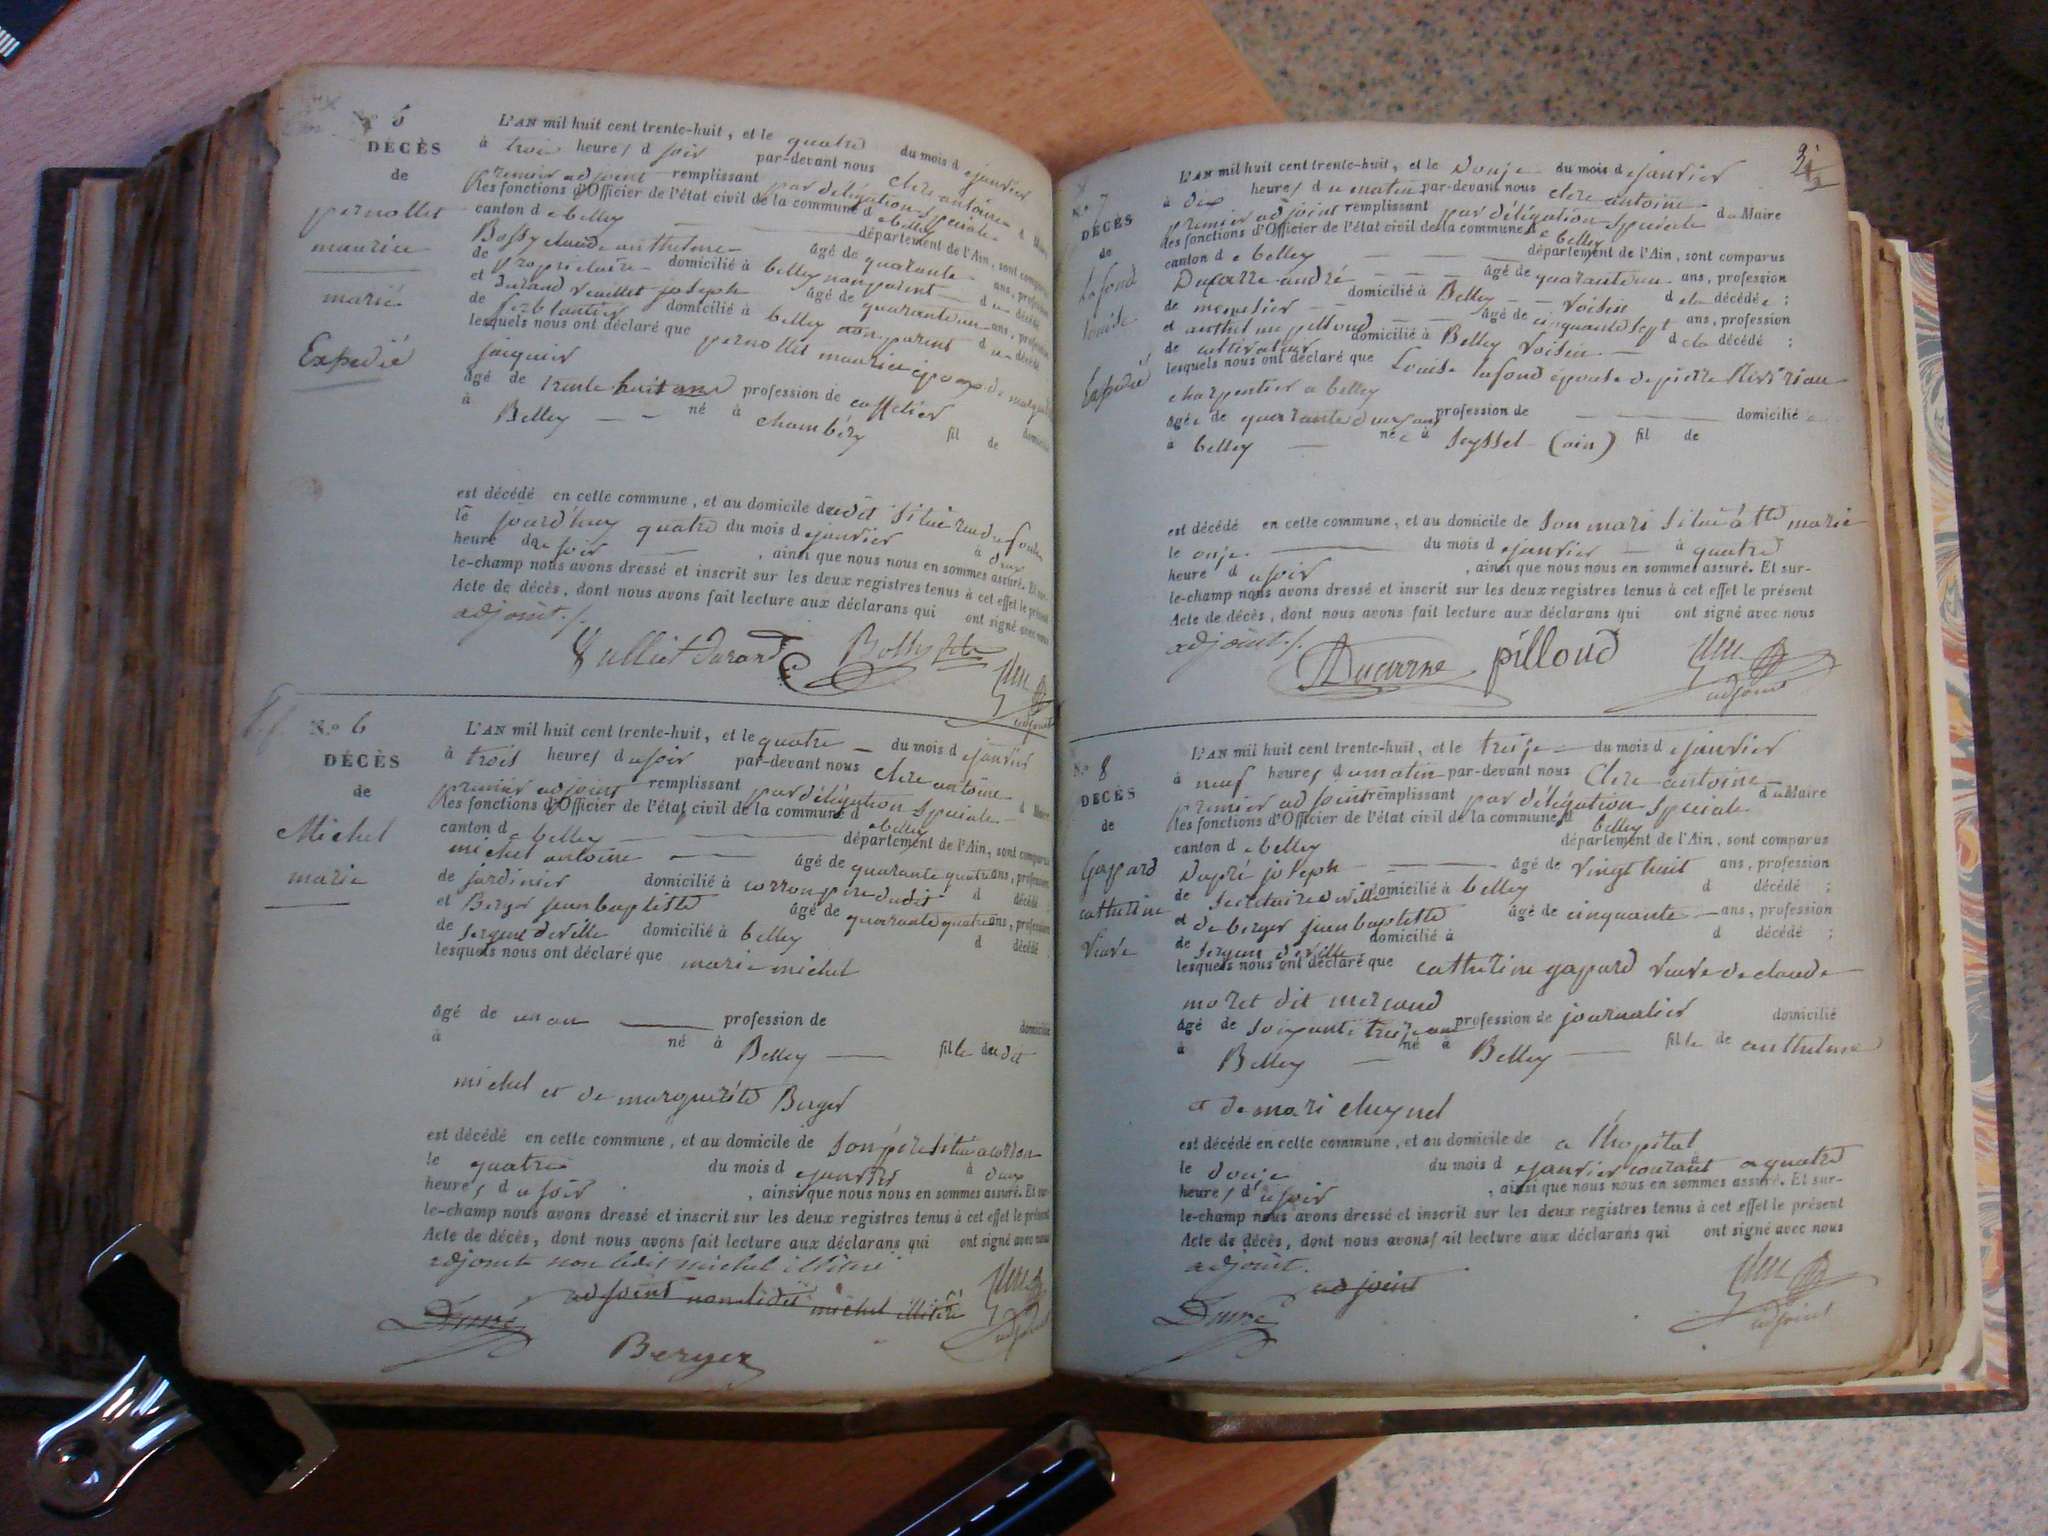 N.º 5
DÉCÈS
de
pernollet
maurice
marié
Expédié
L'AN mil huit cent trente-huit, et le quatre du mois d ejanvier
à trois heures d soir par-devant nous Clerc antoine
premier adjoint remplissant par délégation spéciale d Maire
les fonctions d'Officier de l'état civil de la commune d e belley
canton d e belley département de l'Ain, sont comparus
Bossy claude anthelme âgé de quarante ans, profession
de propriétaire domicilié à belley non parent d u décédé
et Durand Vuilliet joseph âgé de quarante un ans, profession
de ferblantier domicilié à belley non parent d u décédé
lesquels nous ont déclaré que pernollet maurice époux de
jacquier
âgé de trente huit ans profession de caffetier domicilié
à Belley né à chambéry fil de
est décédé en cette commune, et au domicile dudit situé rue
le jourd'huy quatre du mois d ejanvier à deux
heure du soir , ainsi que nous nous en sommes assuré. Et sur-
le-champ nous avons dressé et inscrit sur les deux registres tenus à cet effet le présent
Acte de décès, dont nous avons fait lecture aux déclarans qui ont signé avec nous
adjoint./.
Vulliet Durand Bossy Clerc
adjoint
N.º 6
DÉCÈS
de
Michel
marie
L'AN mil huit cent trente-huit, et le quatre du mois d ejanvier
à trois heures d usoir par-devant nous Clerc antoine
premier adjoint remplissant par délégation spéciale d Maire
les fonctions d'Officier de l'état civil de la commune d e belley
canton d e belley département de l'Ain, sont comparus
michel antoine âgé de quarante quatre ans, profession
de jardinier domicilié à corron père dudit d décédé
et Berger jean baptiste âgé de quarante quatre ans, profession
de sergent de ville domicilié à belley d décédé
lesquels nous ont déclaré que marie michel
âgé de un an profession de domicilié
à né à Belley fille dudit
michel et de marguerite Berger
est décédé en cette commune, et au domicile de son père situé a corron
le quatre du mois d ejanvier à deux
heures d usoir , ainsi que nous nous en sommes assuré. Et sur-
le-champ nous avons dressé et inscrit sur les deux registres tenus à cet effet le présent
Acte de décès, dont nous avons fait lecture aux déclarans qui ont signé avec nous
adjoint non ledit michel illitéré
adjoint non ledit michel illitéré Clerc
Dupré adjoint
Berger
N.º 7
DÉCÈS
de
Lafond
louise
Expédié
L'AN mil huit cent trente-huit, et le douze du mois d ejanvier
à dix heures d u matin par-devant nous clerc antoine
premier adjoint remplissant par délégation spéciale d u Maire
les fonctions d'Officier de l'état civil de la commune d e belley
canton d e belley département de l'Ain, sont comparus
Ducarre andré âgé de quarante un ans, profession
de menuisier domicilié à Belley voisin d e la décédée ;
et anthelme pilloud âgé de cinquante sept ans, profession
de cultivateur domicilié à Belley voisin d e la décédé ;
lesquels nous ont déclaré que Louise lafond épouse de pierre
charpentier a belley
âgée de quarante deux ans profession de domicilié
à belley née à Seyssel (ain) fil de
est décédé en cette commune, et au domicile de son mari situé à marie
le onze du mois d ejanvier à quatre
heure d usoir , ainsi que nous nous en sommes assuré. Et sur-
le-champ nous avons dressé et inscrit sur les deux registres tenus à cet effet le présent
Acte de décès, dont nous avons fait lecture aux déclarans qui ont signé avec nous
adjoint./.
Ducarre pilloud Clerc
adjoint
N.º 8
DÉCÈS
de
Gaspard
catherine
Veuve
L'AN mil huit cent trente-huit, et le treize du mois d ejanvier
à neuf heures d umatin par-devant nous Clerc antoine
premier adjoint remplissant par délégation spéciale d u Maire
les fonctions d'Officier de l'état civil de la commune d belley
canton d e belley département de l'Ain, sont comparus
Dupré joseph âgé de vingt huit ans, profession
de secrétaire de ville domicilié à belley d décédé ;
et de berger jean baptiste âgé de cinquante ans, profession
de sergent de ville domicilié à d décédé ;
lesquels nous ont déclaré que catherine gaspard veuve de claude
moret dit mercand
âgé de soixante treize ans profession de journalier domicilié
à Belley né à Belley fille de anthelme
et de mari
est décédé en cette commune, et au domicile de a l'hopital
le douze du mois d ejanvier courant a quatre
heures d usoir , ainsi que nous nous en sommes assuré. Et sur-
le-champ nous avons dressé et inscrit sur les deux registres tenus à cet effet le présent
Acte de décès, dont nous avons fait lecture aux déclarans qui ont signé avec nous
adjoint.
adjoint Clerc
Dupré adjoint